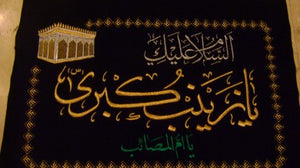 السلام عليك
يا زينب كبرىٰ
يا ام المصائب